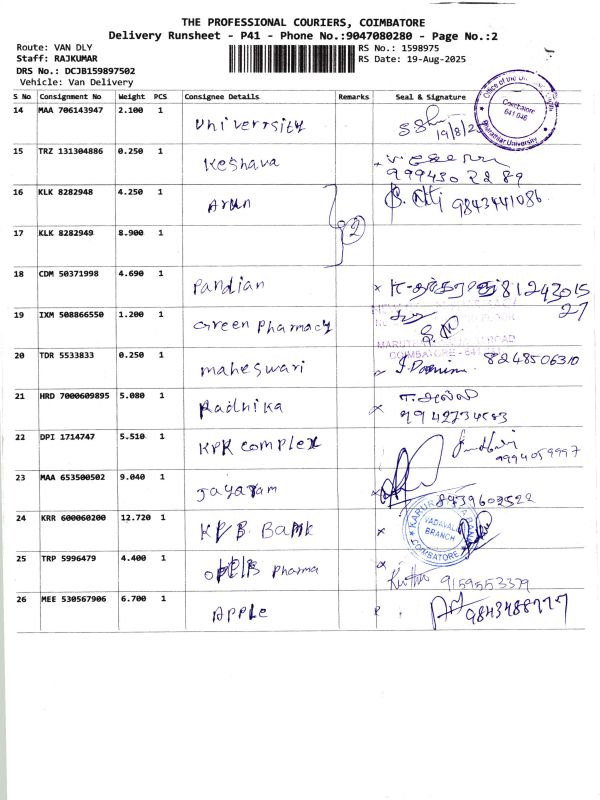 THE PROFESSIONAL COURIERS, COIMBATORE
Delivery Runsheet - P41 - Phone No.:9047080280 - Page No.:2
Route: VAN DLY
Staff: RAJKUMAR
DRS No.: DCJB159897502
Vehicle: Van Delivery
RS No.: 1598975
RS Date: 19-Aug-2025
S No Consignment No Weight PCS Consignee Details Remarks Seal & Signature
Office of the
Coimbatore
641 046
Bharathiar University
14 MAA 706143947 2.100 1 University 19/8/25
15 TRZ 131304886 0.250 1 Keshava
9994302289
16 KLK 8282948 4.250 1 Arun 2 9843441086
17 KLK 8282949 8.900 1
18 CDM 50371998 4.690 1 Pandian 81243015
27
19 IXM 508866550 1.200 1 Green Pharmacy
ROAD
COIMBATORE - 641
20 TDR 5533833 0.250 1 maheswari 8248506310
21 HRD 7000609895 5.080 1 Radhika
22 DPI 1714747 5.510 1 KPR complex
9994059997
23 MAA 653500502 9.040 1 Jayaram 8939602522
24 KRR 600060200 12.720 1 KVB. Bank
KARUR
VADAVALLI
BRANCH
COIMBATORE
25 TRP 5996479 4.400 1 Pharma
9159553379
26 MEE 530567906 6.700 1 Apple 9843488777